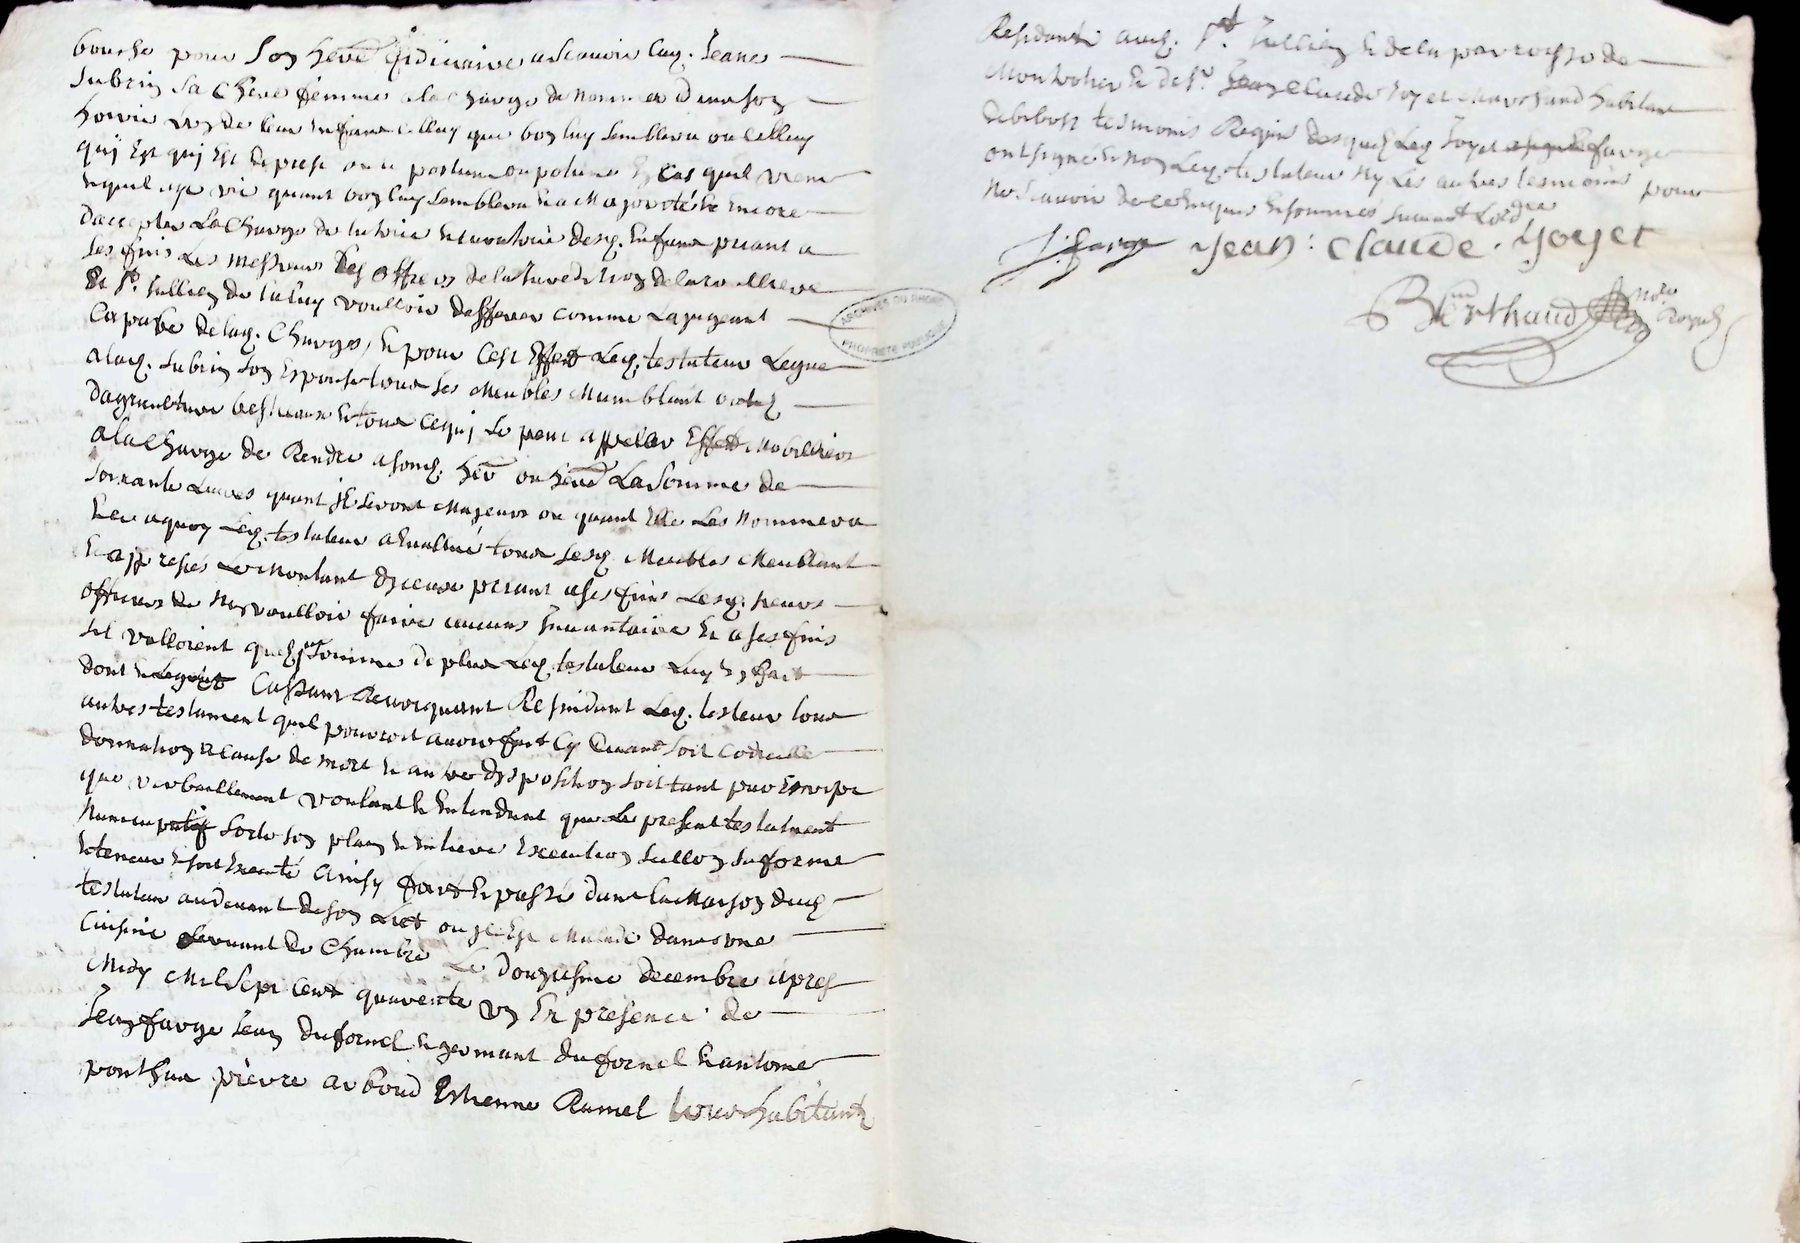 bouche pour son herē fidiciaire a scavoir lad. Jeane
Subrin sa chere femme a la charge de nommer deux son
hoirie un de leur enfant celluy que bon luy semblera ou celluy
quj est quj est de prest ou a postume en cas quil vienne
quant bon luy semblera et a majorité et encore
daccepter la charge de tutrice et curatrice desd. enfans priant a
ses fins les messieurs les officiers de la juredition de
de St. Jullien de luy voulloir defferer comme la jugeant
capable de lad. charge, et pour cest effect led. testateur legue
a lad. Subrin son espouse tous ses meubles mumblant
dagriculture bestiaux et tout ce quj se peut appeller effect mobilliers
a la charge de rendre a sond. herē ou herēd la somme de
soixante livres quant jl seront majeurs ou quant elle les nommera
a quoy led. testateur a evallué tous sesd. meubles meublant
et apres le montant diceux priant a ses fins lesd. sieurs
officiers de ne voulloir faire aucuns inventaire et a ses fins
sil valloient quelq somme de plus led. testateur luy en fait
dont et legat cassant revocquant led. testeur tous
autres testament quil pourroit avoir fait cy devant soit codicille
donnation a cause de mort et autre disposition soit tant par escript
que verballement voulant et entendant que le present testament
nuncupatif sorte son plain et entiere execution sellon sa forme
et teneur et soit executé ainsy fait et passé dans la maison dud.
testateur au devant de son lict ou jl est malade dans une
cuisine servant de chambre le douziesme decembre apres
midy mil sept cent quarente un en presence de
Jean farge Jean dufornel et germant dufornel et antoine
ponthus pierre arboud Estienne Ramel tous habitants
Residants aud. St. Jullien et de la parroisse de
et de Sr. Jean Claude Joyet marchand habitant
tesmoins Requis desquels led. Joyet et farge
ont signé et non led. testateur ny les autres tesmoins pour
ne scavoir de ce enquis et sommés suivant Lordre
J. farge Jean : Claude . Joyet
Berthaud nore Royal
ARCHIVES DU RHONE
PROPRIETE PUBLIQUE